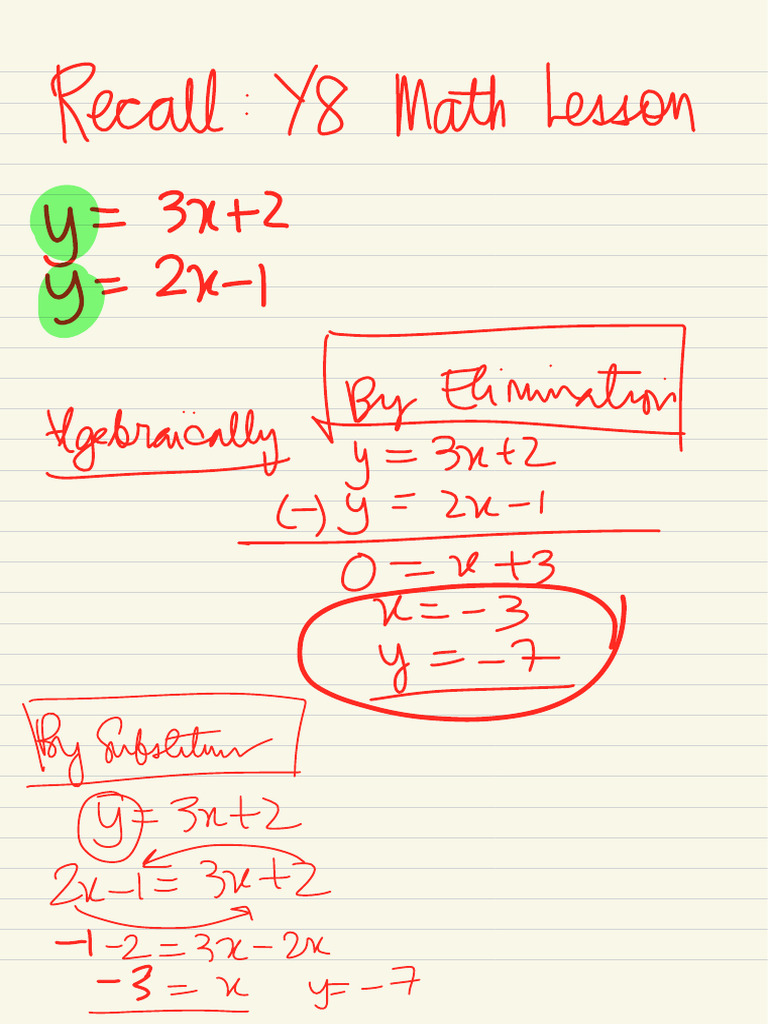 Recall: Y8 Math Lesson
y = 3x+2
y = 2x-1
By Elimination
Algebraically
y = 3x+2
(-) y = 2x-1
0 = x+3
x = -3
y = -7
By Substitun
y = 3x+2
2x-1 = 3x+2
-1-2 = 3x-2x
-3 = x y = -7